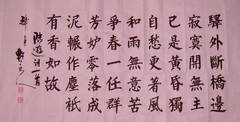 驛外斷橋邊
寂寞開無主
已是黃昏獨
自愁更著風
和雨無意苦
爭春一任群
芳妒零落成
泥輾作塵祇
有香如故
陸遊詞一首